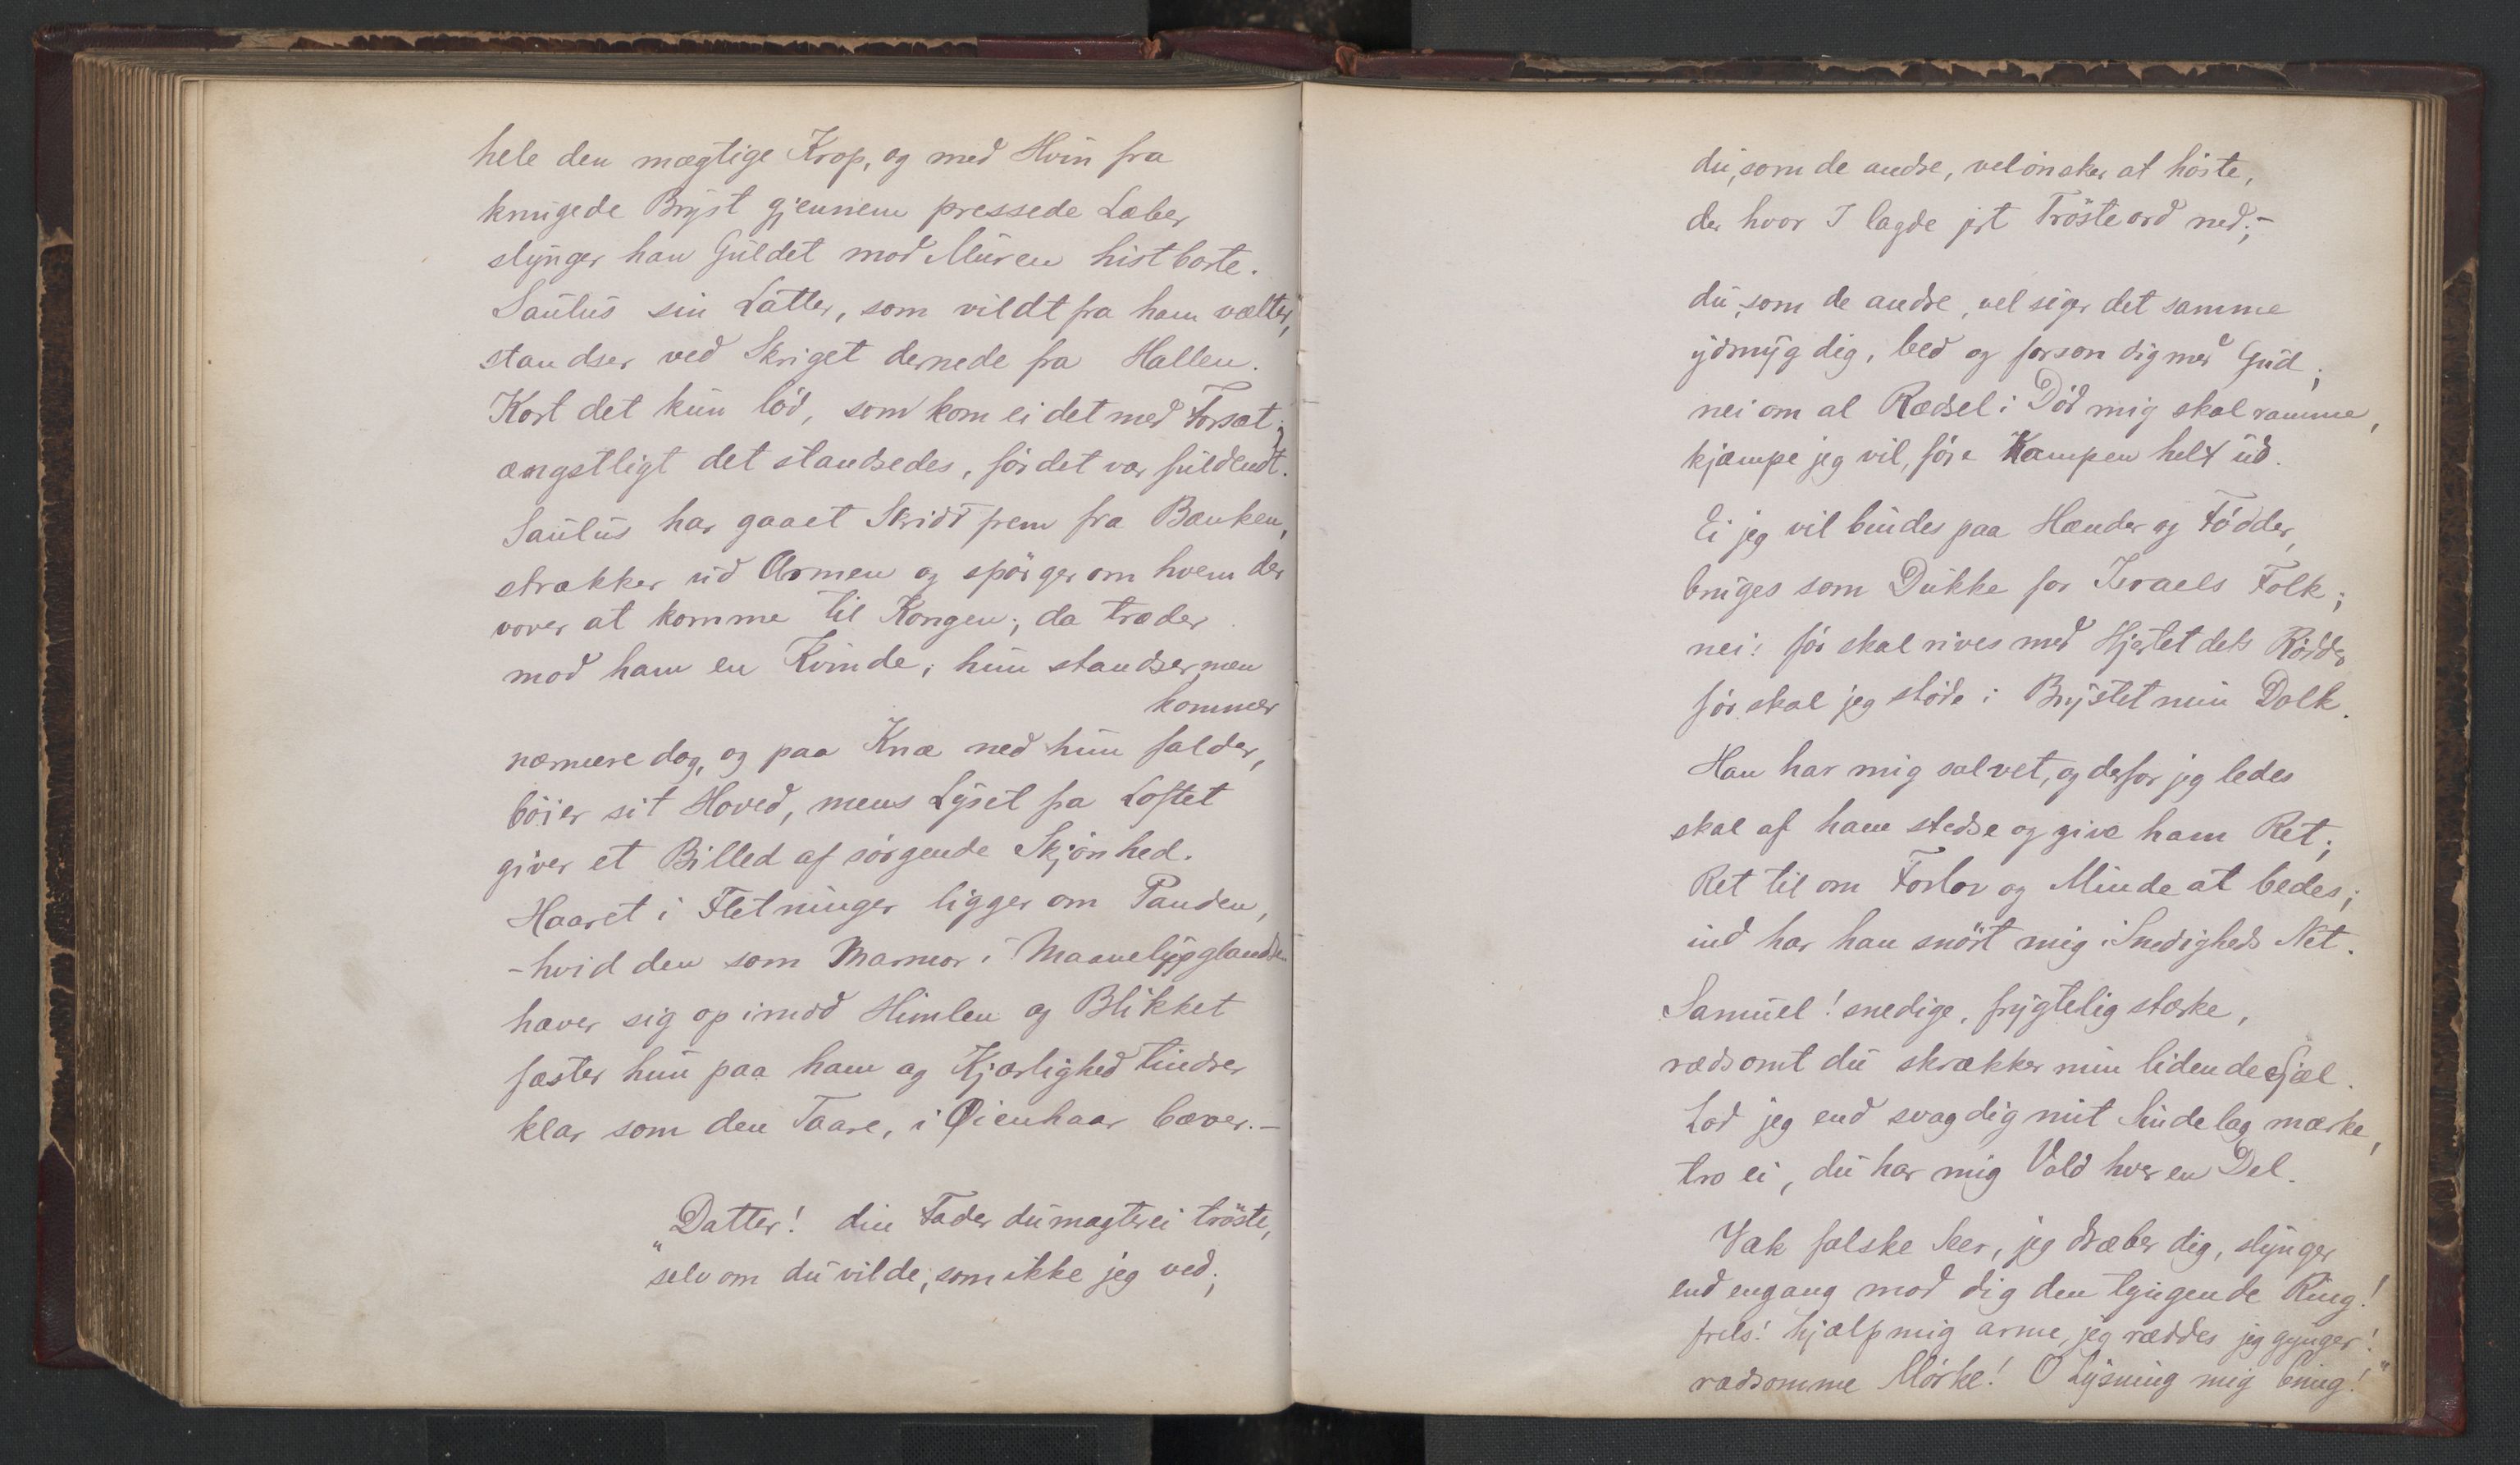 hele den mægtige Krop, og med Hvin fra
knugede Bryst gjennem pressede Læber
slynger han Guldet mod Muren histborte.
Saulus sin Latter, som vildt fra ham vælter,
standser ved Skriget dernede fra Hallen.
Kort det kun lød, som kom ei det med Forsæt;
ængstligt det standsedes, før det var fuldendt.
Saulus har gaaet Skridt frem fra Bænken,
strækker ud Armen og spørger om hvem der
vover at komme til Kongen; da træder
mod ham en Kvinde; hun standser, men
kommer
nærmere dog, og paa Knæ ned hun falder,
bøier sit Hoved, mens Lyset fra Loftet
giver et Billed af sørgende Skjønhed.
Haaret i Fletninger ligger om Panden,
- hvid den som Marmor i Maanelysglandsen
hæver sig op imod Himlen og Blikket
fæster hun paa ham og Kjærlighed tindrer
klar som den Taare, i Øienhaar bæver. -
„Datter! din Fader du magter ei trøste,
selv om du vilde, som ikke jeg ved;
du, som de andre, vel ønsker at høste,
der hvor I lagde jert Trøsteord ned; -
du, som de andre, vel siger det samme
ydmyg dig, bed og forson dig med Gud;
nei om al Rædsel i Død mig skal ramme,
kjæmpe jeg vil, føre Kampen helt ud.
Ei jeg vil bindes paa Hænder og Fødder,
bruges som Dukke for Israels Folk;
nei! før skal rives med Hjertet dets Rødder
før skal jeg støde i Brystet min Dolk.
Han har mig salvet, og derfor jeg ledes
skal af ham stedse og give ham Ret;
Ret til om Forlov og Minde at bedes;
ind har han snørt mig i Snedigheds Net.
Samuel! snedige, frygtelig stærke,
rædsomt du skrækker min lidende Sjæl.
Lod jeg end svag dig mit Sindelag mærke,
tro ei, du har mig Vold hver en Del.
Væk falske Seer, jeg dræber dig, slynger
end engang mod dig den tyngende Ring!
frels! hjælp mig arme, jegræddes jeg gynger!
rædsomme Mørke! O Lysning mig bring!“